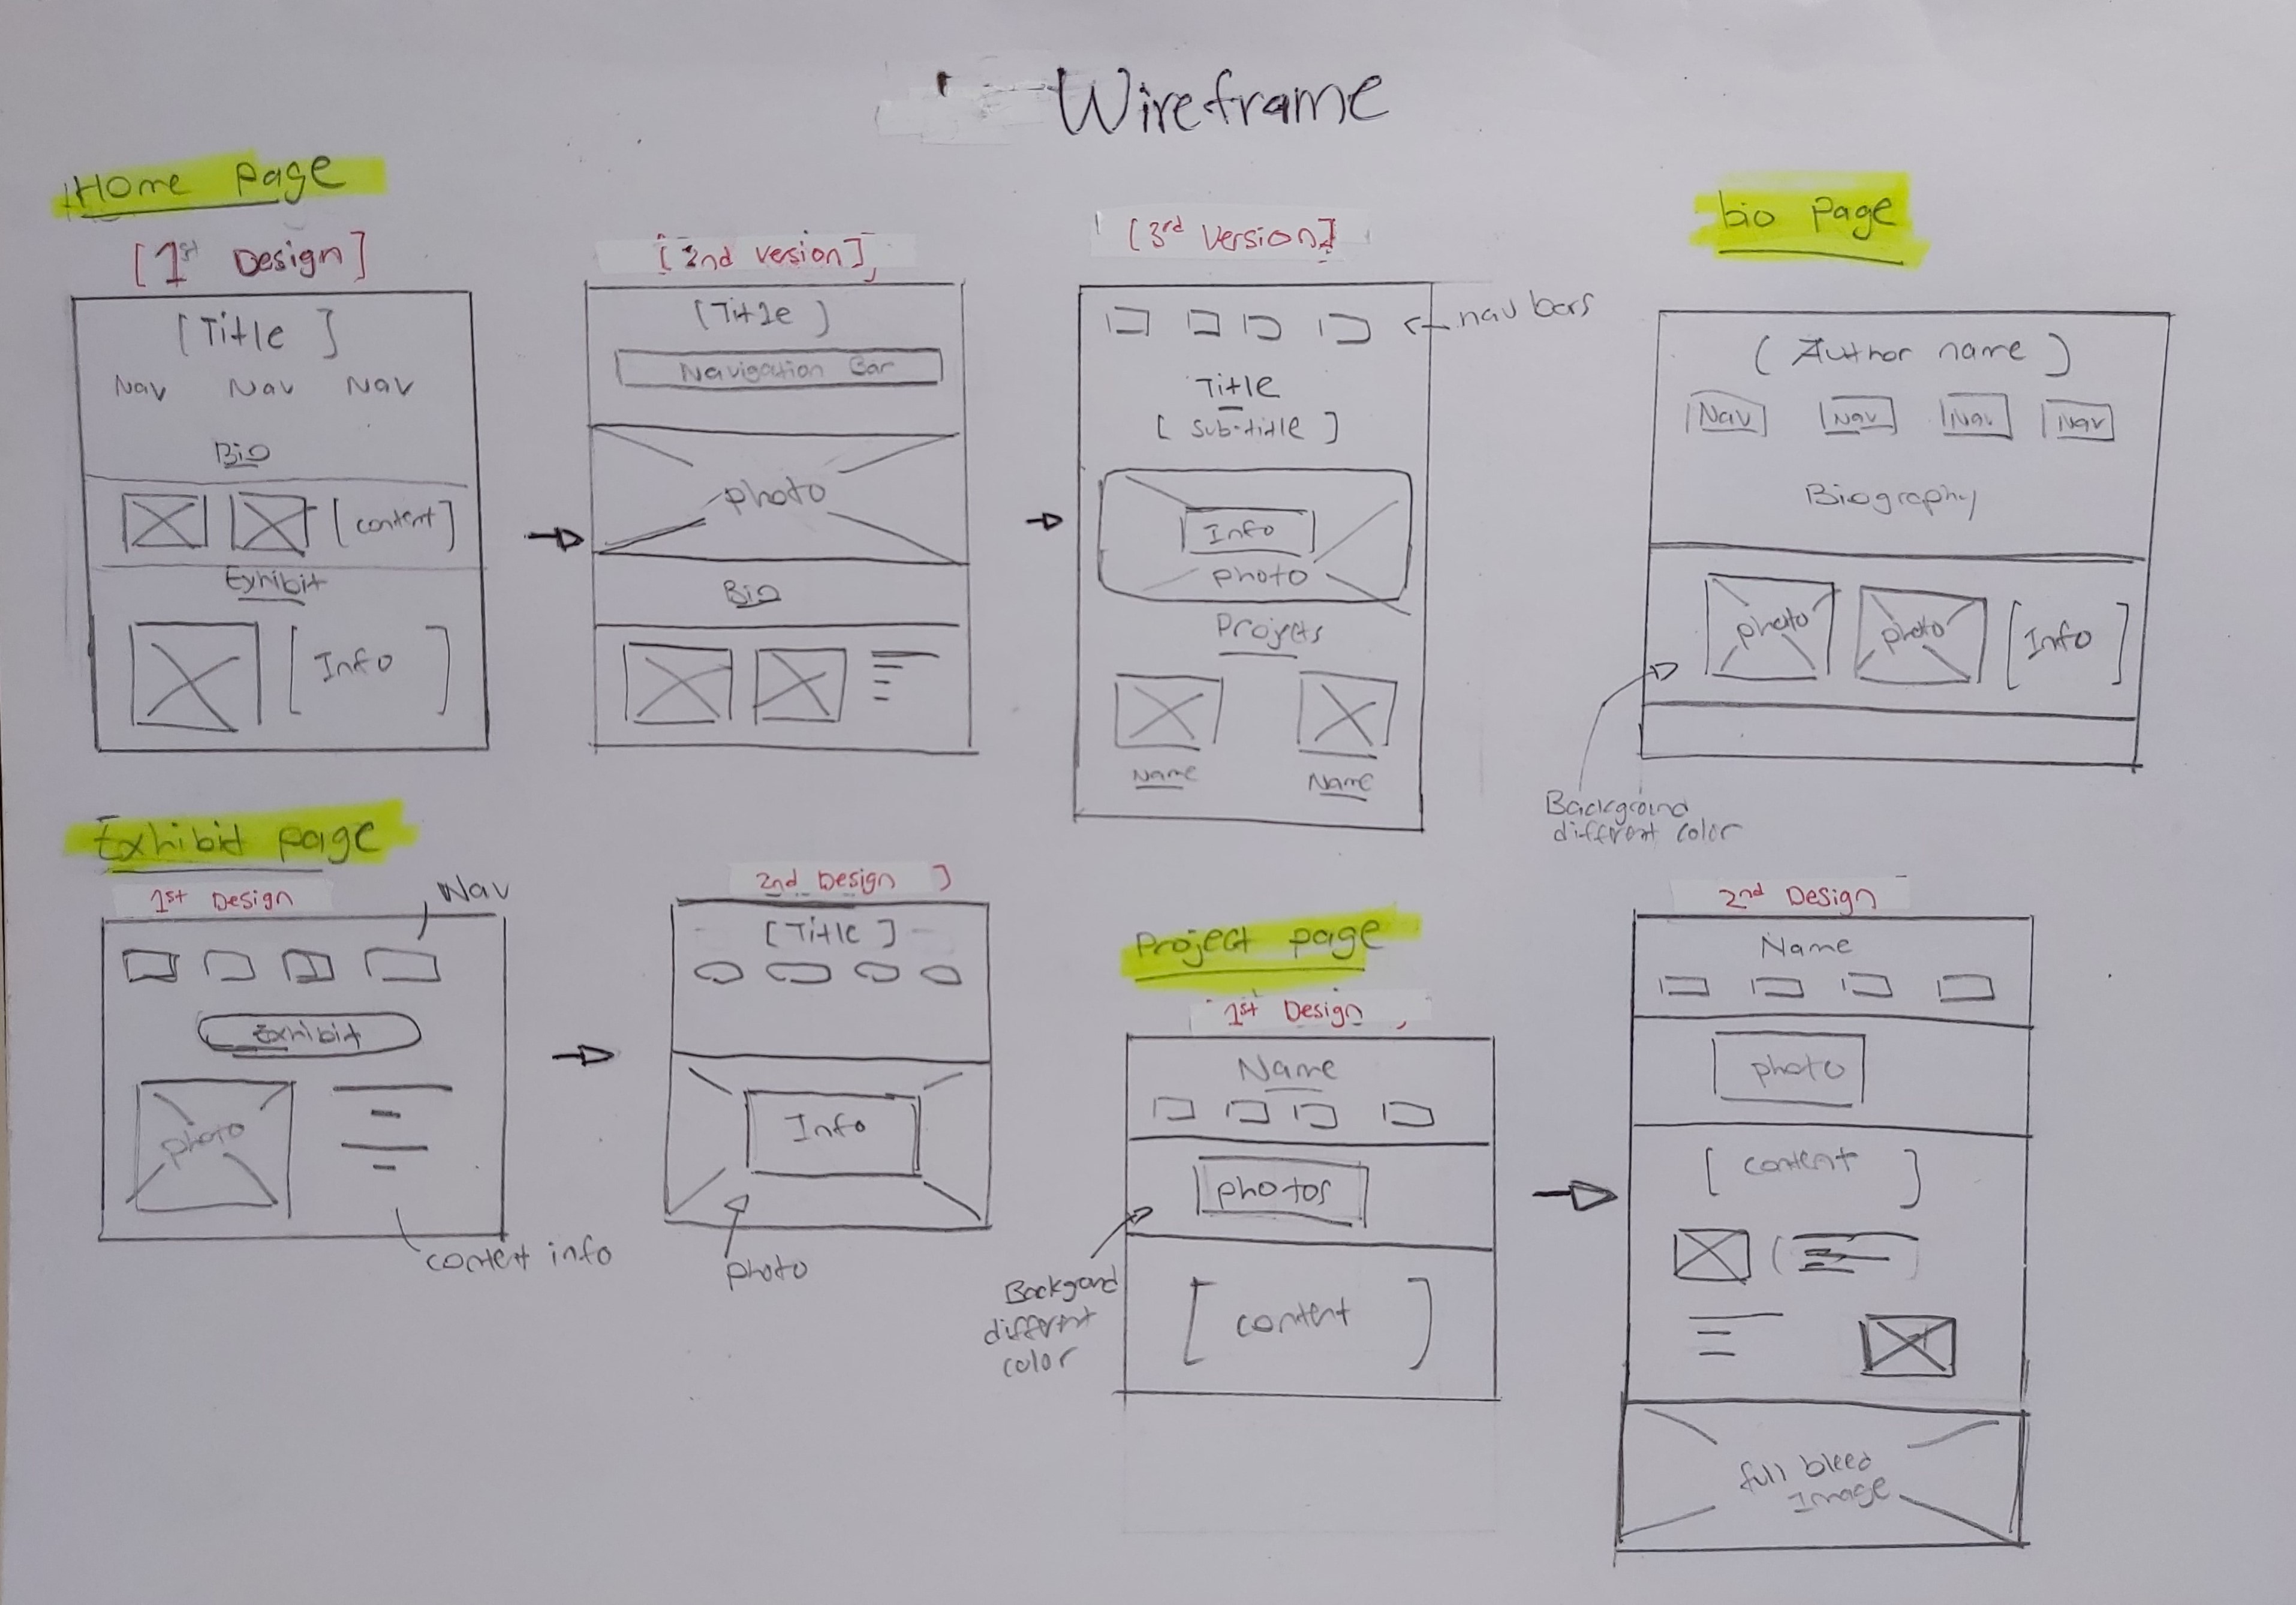 Wireframe
Home page
[1st Design]
[Title]
Nav Nav Nav
Bio
[content]
Exhibit
[Info]
[2nd version]
[Title]
Navigation Bar
photo
Bio
[3rd version]
nav bars
Title
[Sub-title]
Info
photo
Projets
Name Name
bio page
(Author name)
Nav Nav Nav Nav
Biography
photo photo [Info]
Background
different color
Exhibit page
1st Design
Nav
Exhibit
photo
content info
2nd Design ]
[Title]
Info
photo
Project page
1st Design
Name
photos
Backgrond
different
color
[content]
2nd Design
Name
photo
[content]
full bleed
Image